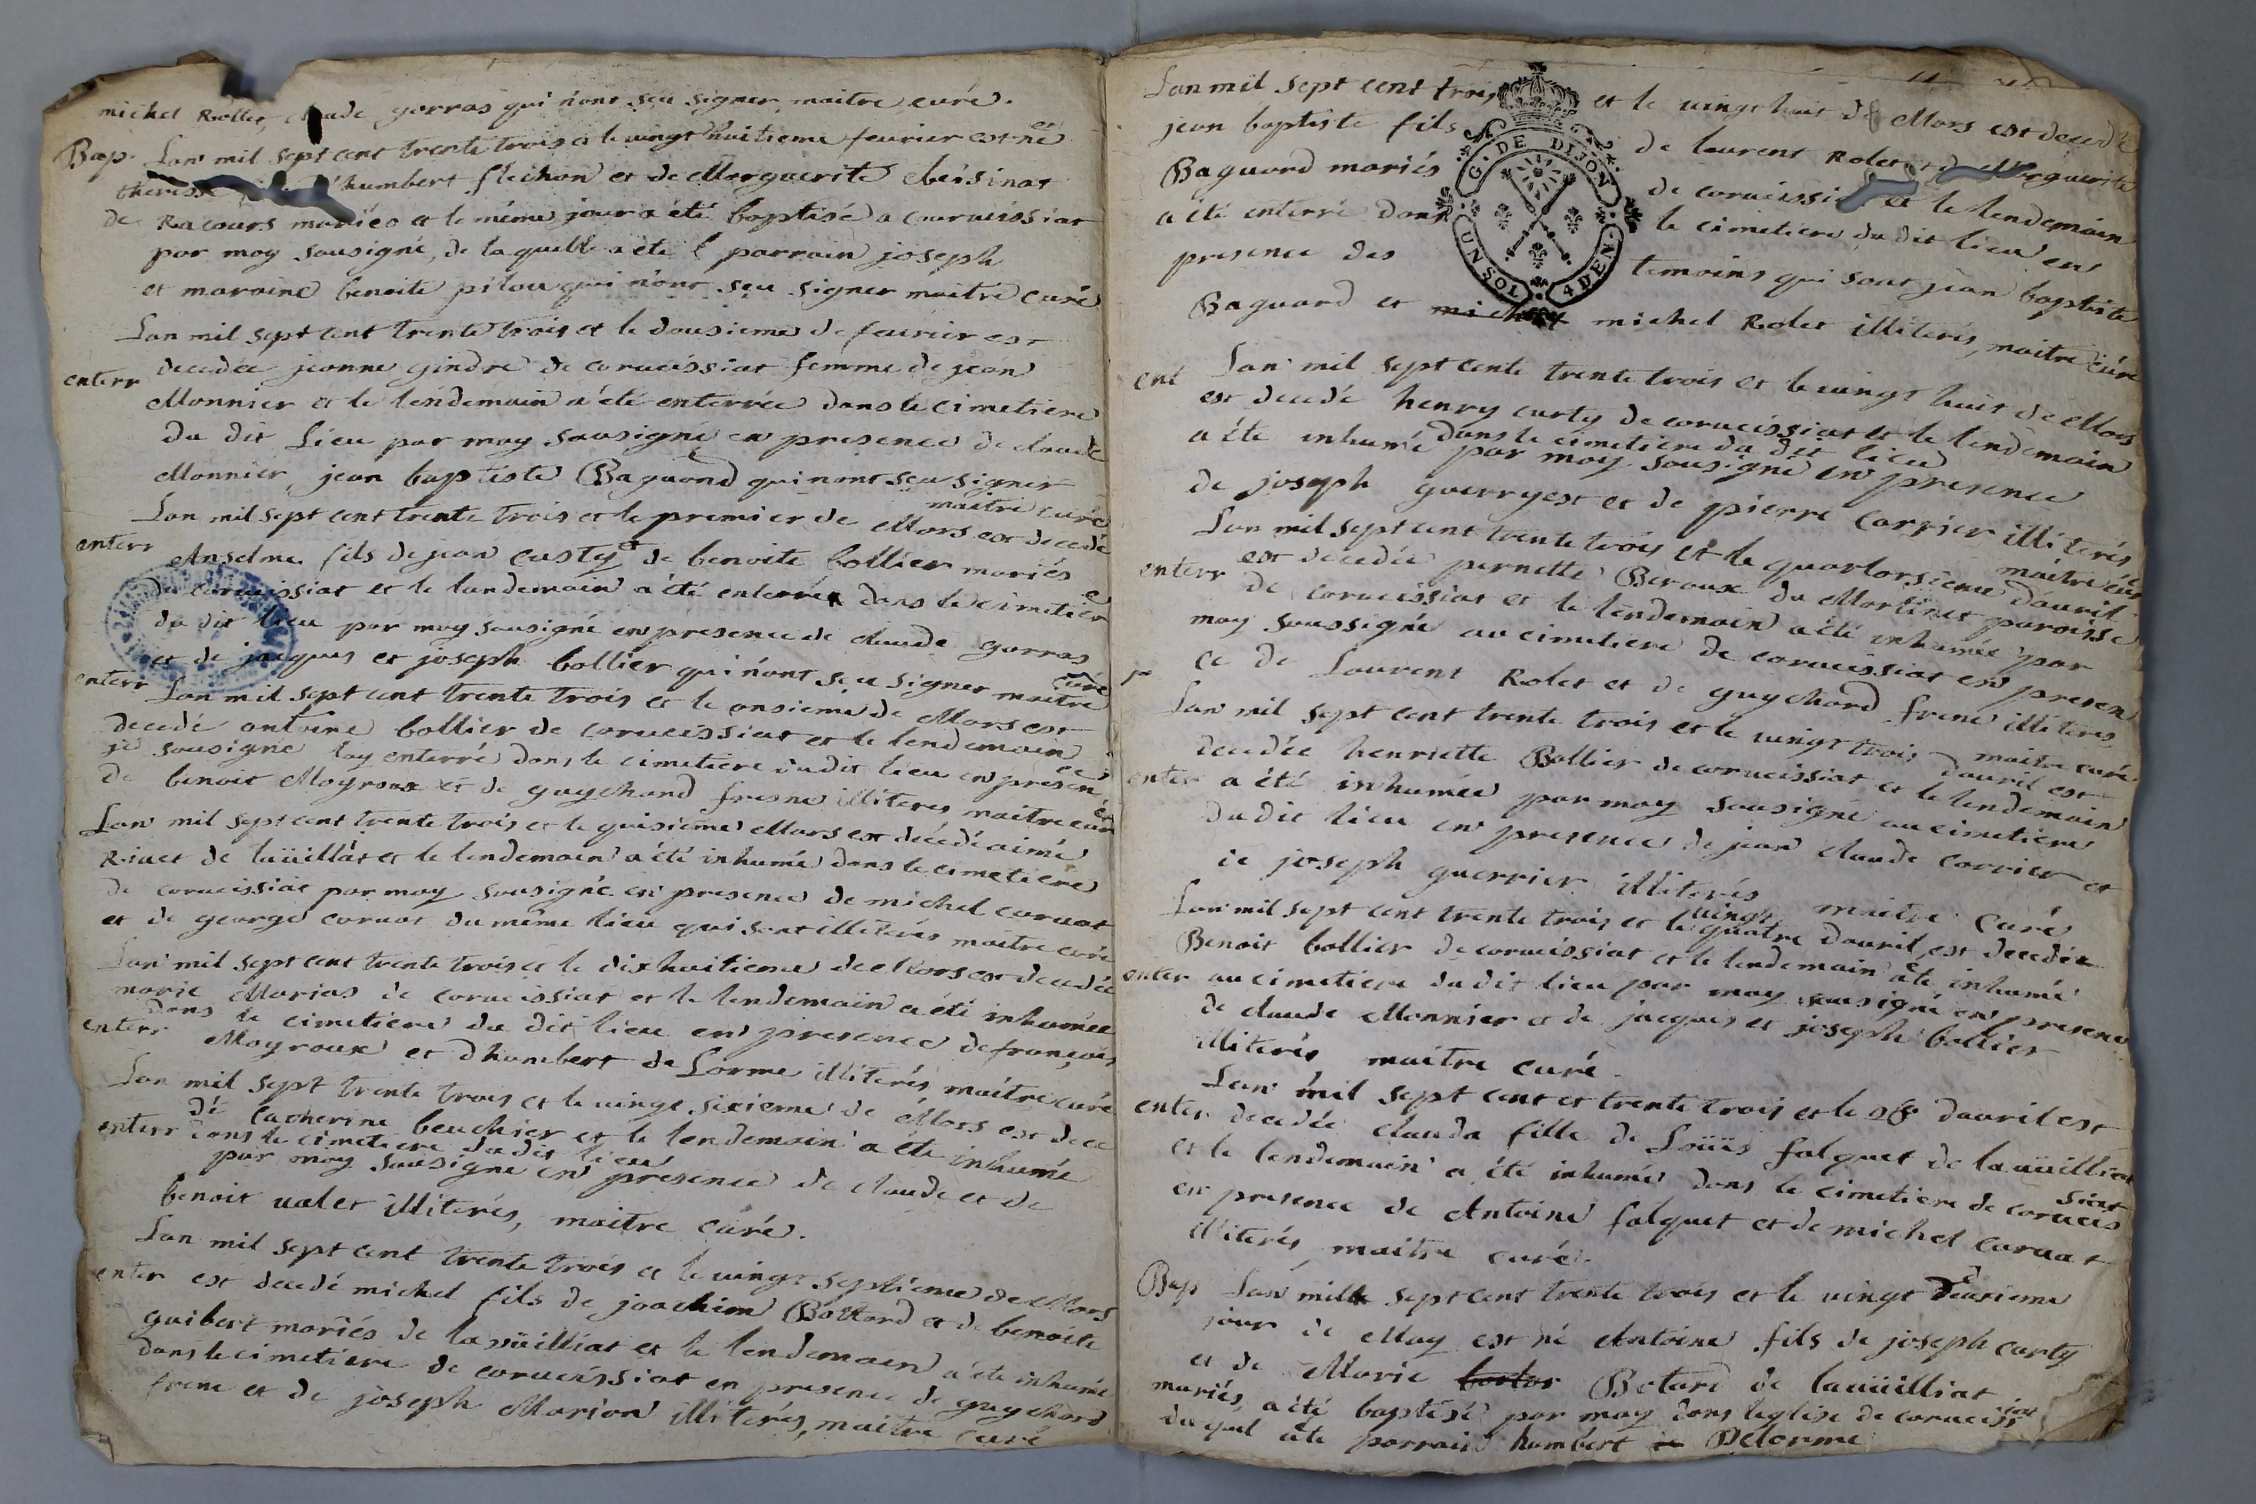 michel Rollet, claude gorras qui n'ont sçu signer, maitre curé.
Bap. L'an mil sept cent trente trois et le vingt huitieme fevrier est né
d'humbert flechon et de Marguerite
de Racours mariés et le même jour a été baptisé a corveissiat
par moy sousigné, de laquelle a été parrain joseph
et maraine benoite pilou qui n'ont sçu signer maitre curé
Lan mil sept cent trente trois et le dousieme de fevrier est
enterr decedée jeanne gindre de corveissiat femme de jean
Monnier et le lendemain a été enterrée dans le cimetiere
du dit Lieu par moy sousigné en presence de claude
Monnier, jean baptiste Baguard qui n'ont sçu signer
maitre curé
Lan mil sept cent trente trois et le premier de Mars est decedé
enterr Anselme fils de jean custy et de benoite bollier mariés
de corveissiat et le landemain a été enterré dans le cimetier
du dit lieu par moy sousigné en presence de claude gorras
et de jacques et joseph bollier qui n'ont sçu signer maitre curé
enterr Lan mil sept cent trente trois et le onsieme de Mars est
decedé antoine bollier de corveissiat et le lendemain
je sousigné l'ay enterré dans le cimetiere du dit lieu en presence
de benoit Moyroux et de guychard fresne illiteres maitre curé
Lan mil sept cent trente trois et le quisieme Mars est décédé aimé
Rivet de laüillat et le lendemain a été inhumé dans le cimetiere
de corveissiat par moy sousigné en presence de michel corvat
et de george corvat du même lieu qui sont illiterés maitre curé
Lan mil sept cent trente trois et le dixhuitieme de Mars est decedée
marie Marias de corveissiat et le lendemain a été inhumée
dans le cimetiere du dit lieu en presence de françois
enterr Moyroux et d'humbert de Lorme illiterés, maitre curé
Lan mil sept trente trois et le vingt sixieme de Mars est dece
dé catherine beuchier et le lendemain a été inhumé
enterr dans le cimetiere du dit lieu
par moy sousigné en presence de claude et de
benoit valet illiterés, maitre curé.
Lan mil sept cent trente trois et le vingt septieme de Mars
enter est decedé michel fils de joachim Bottard et de benoite
guibert mariés de la vüilliat et le lendemain a été inhumé
dans le cimetiere de corveissiat en presence de guychard
frene et de joseph Marion illiterés, maitre curé
Lan mil sept cent trois et le vingt huit de Mars est decedé
jean baptiste fils de laurent Rolet et de Marguerite
Baguard mariés de corveissiat et le lendemain
a été enterré dans le cimetiere du dit lieu en
presence des temoins qui sont jean baptiste
Baguard et michel michel Rolet illiterés, maitre curé
G. DE DIJON
UN SOL 4 DEN.
ent Lan mil sept cente trente trois et le vingt huit de Mars
est decedé henry curty de corveissiat et le lendemain
a été inhumé dans le cimetiere du dit lieu
par moy sousigné en presence
de joseph guerryest et de pierre Carrier illiterés
maitre curé
Lan mil sept cent trente trois et le quatorsieme d'avril
enterr est decedée pernette Beroux du Martinet paroisse
de corveissiat et le lendemain a été inhumée par
moy soussigné au cimetiere de corveissiat en presen
ce de Laurent Rolet et de guychard frene illiteres
maitre curé
Lan mil sept cent trente trois et le vingt trois d'avril est
decedée henriette Bollier de corveissiat et le lendemain
enter a été inhumée par moy sousigné au cimetiere
du dit lieu en presence de jean claude carrier et
de joseph guerrier illiterés maitre curé
Lan mil sept cent trente trois et le vingt quatre d'avril est decedée
Benoit bollier de corveissiat et le lendemain a été inhumé
enter au cimetiere du dit lieu par moy sousigné en presence
de claude Monnier et de jacques et joseph bollier
illiterés maitre curé.
Lan mil sept cent et trente trois et le 28 d'avril est
enter decedée clauda fille de Loüis falquet de la vüilliat
et le lendemain a été inhumé dans le cimetiere de corveis
siat
en presence de Antoine falquet et de michel carvat
illiterés, maitre curé.
Bap Lan mil sept cent trente trois et le vingt deuxieme
jour de May est né Antoine fils de joseph carty
et de Marie Botard de lavüilliat
mariés, a été baptisé par moy dans leglise de corveissiat
du quel a été parrain humbert Delorme